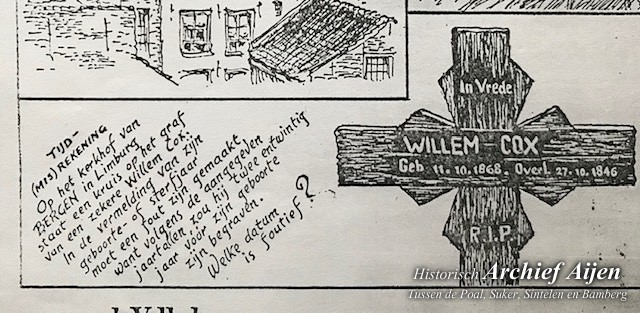 TIJD-
(MIS) REKENING
Op het kerkhof van
BERGEN in Limburg
staat een kruis op het graf
van een zekere Willem Cox.
In de vermelding van zijn
geboorte- of sterfjaar
moet een fout zijn gemaakt
want volgens de aangegeven
jaartallen zou hij twee entwintig
jaar vóór zijn geboorte
zijn begraven.
Welke datum
is foutief?
In Vrede
WILLEM COX
Geb 11.10.1868. Overl. 27.10.1846
R.I.P.
Historisch Archief Aijen
Tussen de Poal, Suker, Sintelen en Bamberg